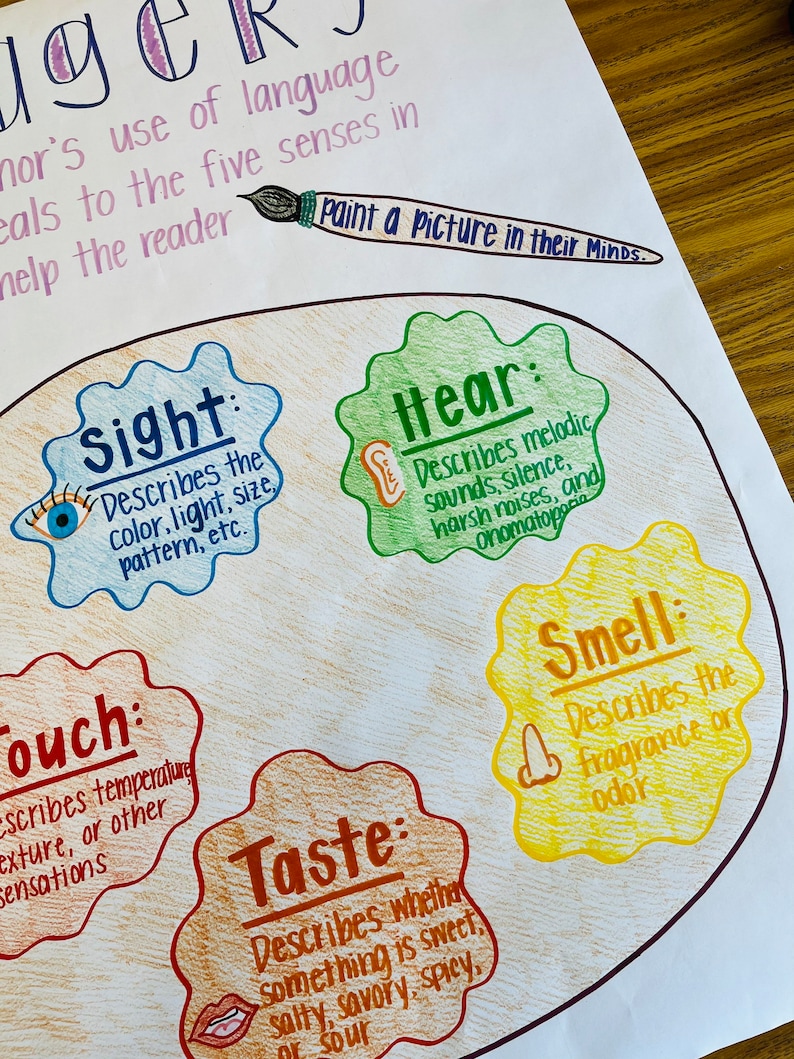 agery
hor's use of language
eals to the five senses in
help the reader
Paint a Picture in their Minds.
Sight:
Describes the
color, light, size,
pattern, etc.
Hear:
Describes melodic
sounds, silence,
harsh noises, and
onomatopoeia
Smell:
Describes the
fragrance or
odor
Touch:
escribes temperature,
exture, or other
sensations
Taste:
Describes whether
something is sweet,
salty, savory, spicy,
or sour